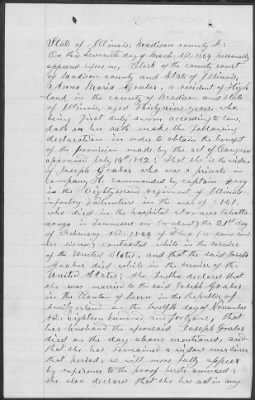 State of Illinois, Madison county Ss.
On this seventh day of March, A.D. 1864 personally
appeared before me, Clerk of the county court
of Madison county and State of Illinois,
Anna Maria Graber, a resident of High
land in the county of Madison and state
of Illinois, aged thirty nine years who
being first duly sworn according to law,
doth on her oath make the following
declaration in order to obtain the benefit
of the provision made by the act of Congress
approved July 14th 1862; That she is the widow
of Joseph Graber who was a private in
company H. commanded by captain
in the Eighty second regiment of Illinois
infantry volunteers in the war of 1861.
who died in the hospital
in on about the 21st day
of February A.D. 1864 of
contracted while in the service
of the United States, and that the said Joseph
Graber died while in the service of the
United States; she further declares that
she was married to the said Joseph Graber
in the Canton of Berne in the Republic of
Switzerland on the twelfth day of November
A.D. eighteen hundred and forty nine, that
her husband the aforesaid Joseph Graber
died on the day above mentioned, and
that she has remained a widow ever since
that period, as will more fully appear
by reference to the proof hereto annexed;
she also declares that she has not in any